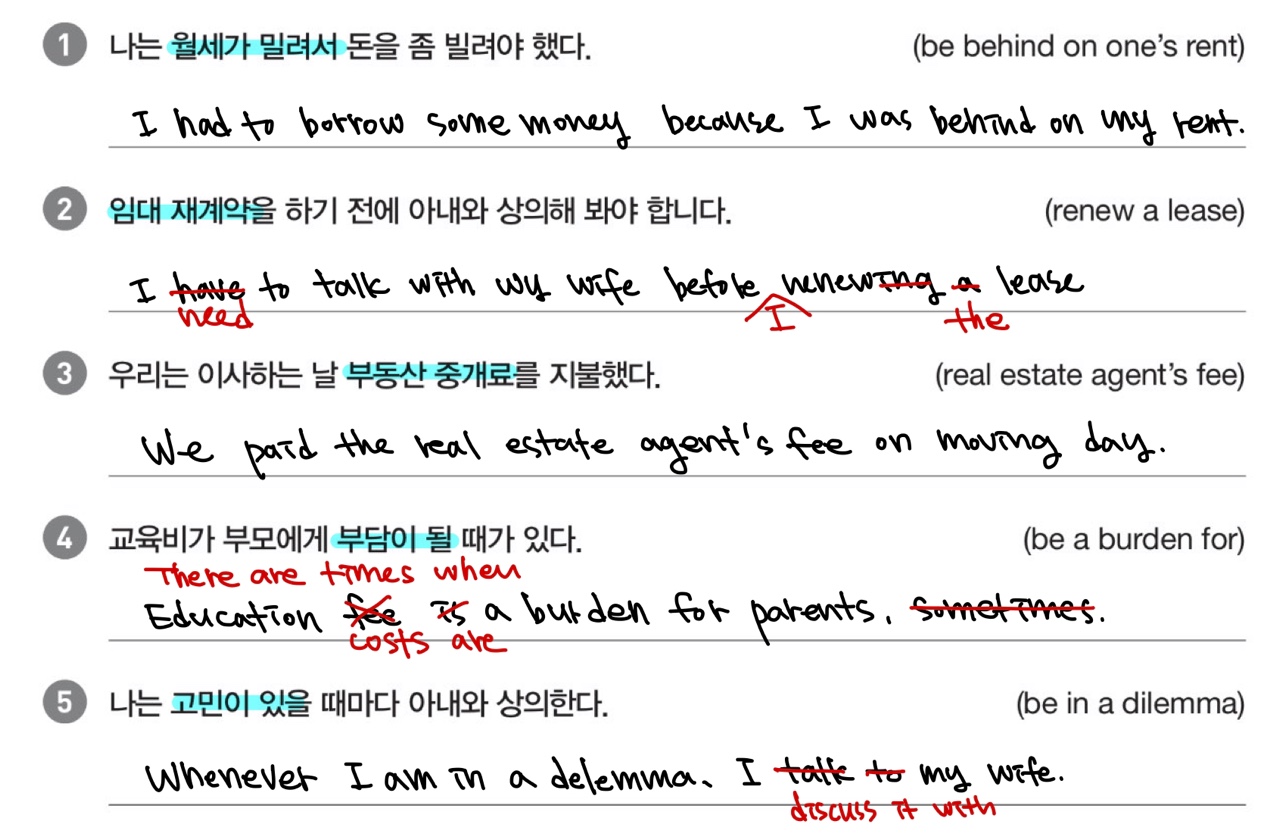 1 나는 월세가 밀려서 돈을 좀 빌려야 했다. (be behind on one's rent)
I had to borrow some money because I was behind on my rent.
2 임대 재계약을 하기 전에 아내와 상의해 봐야 합니다. (renew a lease)
I have to talk with my wife before renewing a lease
need I the
3 우리는 이사하는 날 부동산 중개료를 지불했다. (real estate agent's fee)
We paid the real estate agent's fee on moving day.
4 교육비가 부모에게 부담이 될 때가 있다. (be a burden for)
There are times when
Education fee is a burden for parents, sometimes.
costs are
5 나는 고민이 있을 때마다 아내와 상의한다. (be in a dilemma)
Whenever I am in a delemma, I talk to my wife.
discuss it with